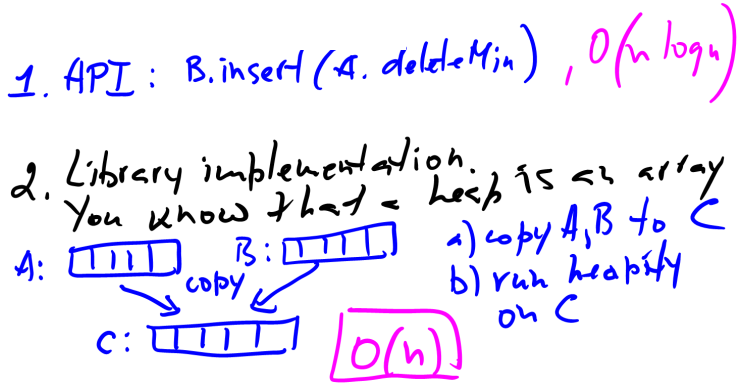 1. API: B.insert(A.deleteMin), O(n log n)
2. Library implementation.
You know that a heap is an array
A:
B:
copy
C:
a) copy A,B to C
b) run heapify
on C
O(n)